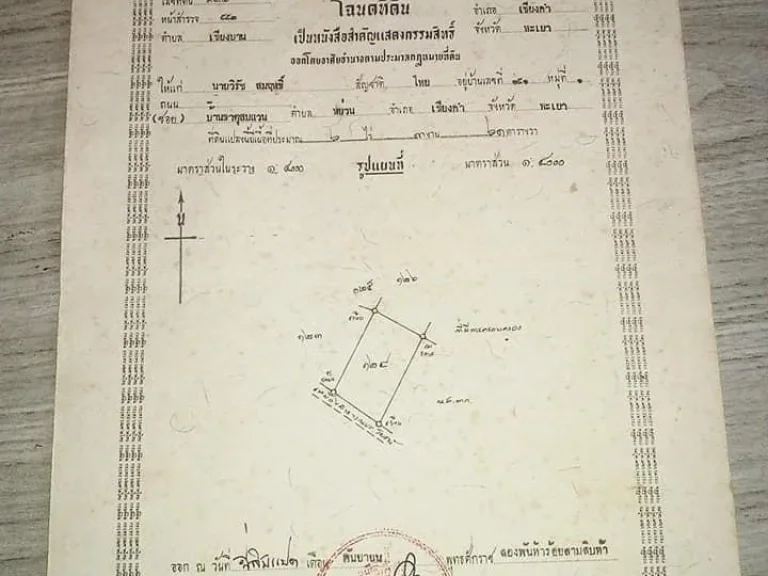 โฉนดที่ดิน
อำเภอ เชียงคำ
หน้าสำรวจ ๔๔๑
ตำบล เชียงบาน
เป็นหนังสือสำคัญแสดงกรรมสิทธิ์
จังหวัด พะเยา
ออกโดยอาศัยอำนาจตามประมวลกฎหมายที่ดิน
ให้แก่ นายวิรัช สมฤทธิ์ สัญชาติ ไทย อยู่บ้านเลขที่ หมู่ที่ ๑
ถนน
(ซอย) ตำบล หย่วน อำเภอ เชียงคำ จังหวัด พะเยา
ที่ดินแปลงนี้มีเนื้อที่ประมาณ ๒ ไร่ งาน ตารางวา
มาตราส่วนในระวาง ๑: ๔๐๐๐
รูปแผนที่
มาตราส่วน ๑: ๔๐๐๐
น
๑๒๕
๑๒๖
๑๒๓
๑๒๔
ที่มีการครอบครอง
น.ส.๓ก.
ออก ณ วันที่ ยี่สิบแปด เดือน กันยายน พุทธศักราช สองพันห้าร้อยสามสิบห้า